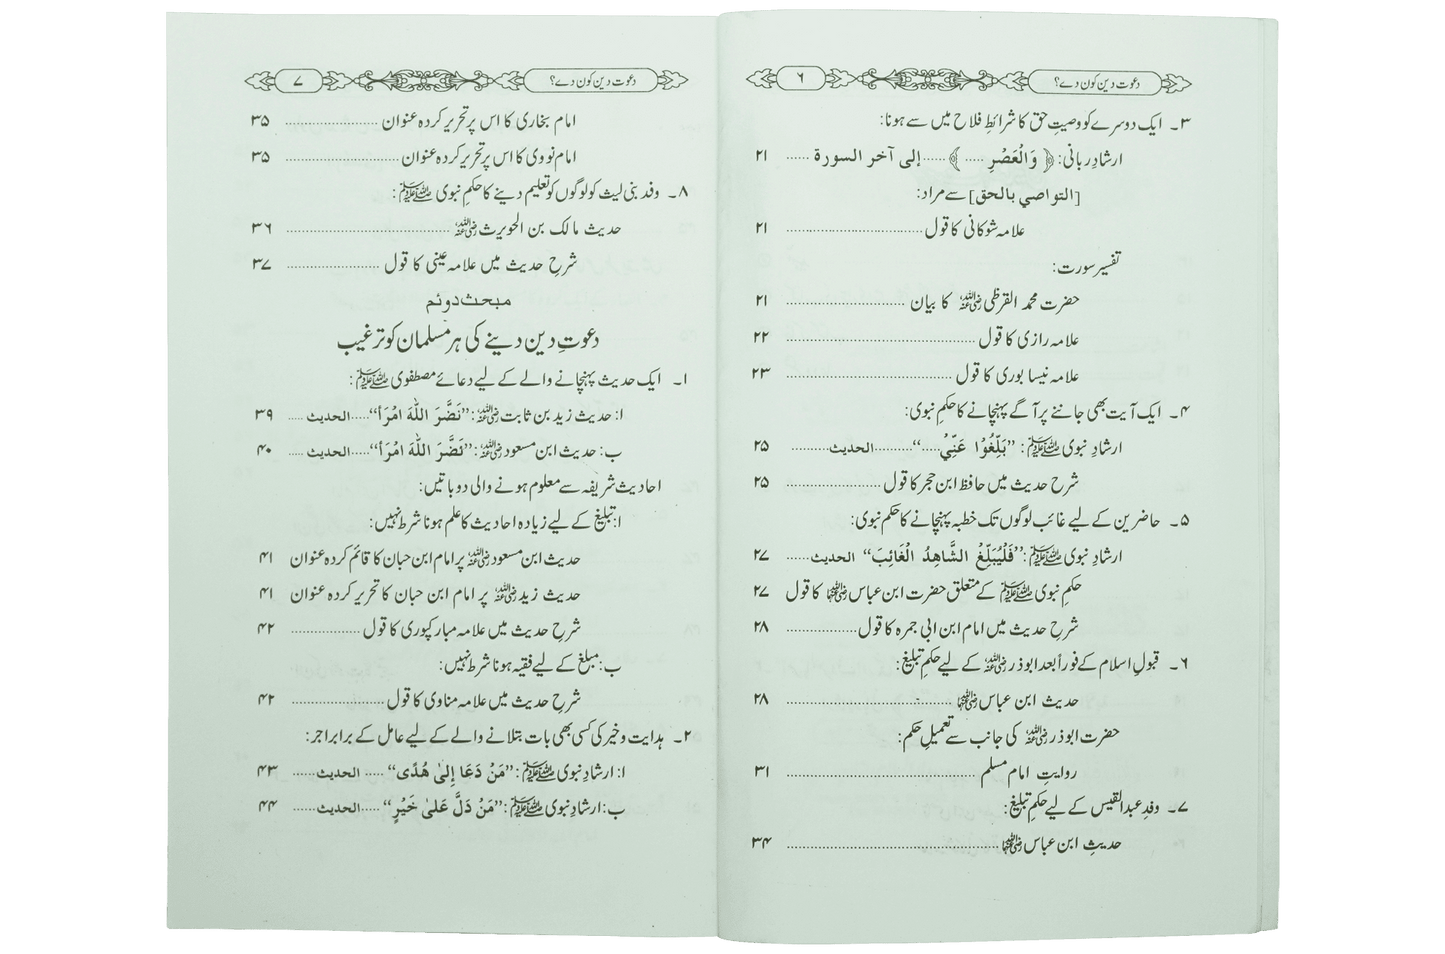 دعوت دین کون دے؟ ۶
۳۔ ایک دوسرے کو وصیتِ حق کا شرائطِ فلاح میں سے ہونا:
ارشادِ ربانی: ﴿ وَالْعَصْرِ ..... ﴾ ...... إلى آخر السورة ...... ۲۱
[التواصي بالحق] سے مراد:
علامہ شوکانی کا قول ...... ۲۱
تفسیر سورت:
حضرت محمد القرظی رضی اللہ عنہ کا بیان ...... ۲۱
علامہ رازی کا قول ...... ۲۲
علامہ نیسابوری کا قول ...... ۲۳
۴۔ ایک آیت بھی جاننے پر آگے پہنچانے کا حکمِ نبوی:
ارشادِ نبوی ﷺ: ”بَلِّغُوْا عَنِّيْ.....“ ......... الحديث ......... ۲۵
شرح حدیث میں حافظ ابن حجر کا قول ...... ۲۵
۵۔ حاضرین کے لیے غائب لوگوں تک خطبہ پہنچانے کا حکم نبوی:
ارشادِ نبوی ﷺ: ”فَلْيُبَلِّغْ الشَّاهِدُ الْغَائِبَ“ الحديث ...... ۲۷
حکمِ نبوی ﷺ کے متعلق حضرت ابن عباس رضی اللہ عنہما کا قول ۲۷
شرحِ حدیث میں امام ابن ابی جمرہ کا قول ...... ۲۸
۶۔ قبولِ اسلام کے فوراً بعد ابوذر رضی اللہ عنہ کے لیے حکمِ تبلیغ:
حدیث ابن عباس رضی اللہ عنہما ...... ۲۸
حضرت ابوذر رضی اللہ عنہ کی جانب سے تعمیلِ حکم:
روایتِ امام مسلم ...... ۳۱
۷۔ وفدِ عبدالقیس کے لیے حکمِ تبلیغ:
حدیثِ ابن عباس رضی اللہ عنہما ...... ۳۴
دعوت دین کون دے؟ ۷
امام بخاری کا اس پر تحریر کردہ عنوان ...... ۳۵
امام نووی کا اس پر تحریر کردہ عنوان ...... ۳۵
۸۔ وفد بنی لیث کو لوگوں کو تعلیم دینے کا حکمِ نبوی ﷺ:
حدیث مالک بن الحویرث رضی اللہ عنہ ...... ۳۶
شرحِ حدیث میں علامہ عینی کا قول ...... ۳۷
مبحث دوئم
دعوتِ دین دینے کی ہر مسلمان کو ترغیب
۱۔ ایک حدیث پہنچانے والے کے لیے دعائے مصطفوی ﷺ:
ا: حدیث زید بن ثابت رضی اللہ عنہ: ”نَضَّرَ اللّٰهَ امْرَأً“ ..... الحديث ..... ۳۹
ب: حدیث ابن مسعود رضی اللہ عنہ: ”نَضَّرَ اللّٰهَ امْرَأً“ ..... الحديث ..... ۴۰
احادیث شریفہ سے معلوم ہونے والی دو باتیں:
ا: تبلیغ کے لیے زیادہ احادیث کا علم ہونا شرط نہیں:
حدیث ابن مسعود رضی اللہ عنہ پر امام ابن حبان کا قائم کردہ عنوان ۴۱
حدیث زید رضی اللہ عنہ پر امام ابن حبان کا تحریر کردہ عنوان ۴۱
شرحِ حدیث میں علامہ مبارکپوری کا قول ...... ۴۲
ب: مبلغ کے لیے فقیہ ہونا شرط نہیں:
شرحِ حدیث میں علامہ مناوی کا قول ...... ۴۲
۲۔ ہدایت و خیر کی کسی بھی بات بتلانے والے کے لیے عامل کے برابر اجر:
ا: ارشادِ نبوی ﷺ: ”مَنْ دَعَا إِلىٰ هُدًى“ ..... الحديث ...... ۴۳
ب: ارشادِ نبوی ﷺ: ”مَنْ دَلَّ عَلىٰ خَيْرٍ“ ..... الحديث ...... ۴۴